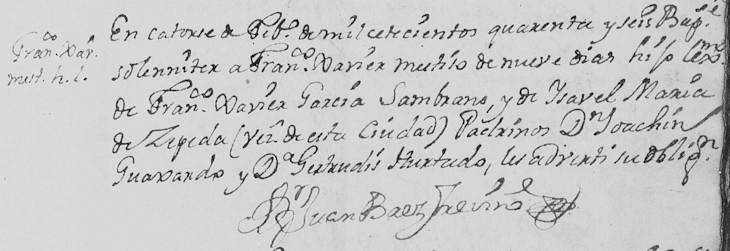 Fran.co Xav.r
mest. h. l.
En catorse de Feb.o de mil cetecientos quarenta y seis Bap.e
solenniter a Fran.co Xavier mestiso de nueve dias hijo lex.mo
de Fran.co Xavier Garcia Sambrano, y de Isavel Maria
de Zepeda (vez.s de esta Ciudad) Padrinos D.n Joachin
Guarando y D.a Gertrudis Hurtado, les adverti su oblig.n
B.r Juan Baez Treviño